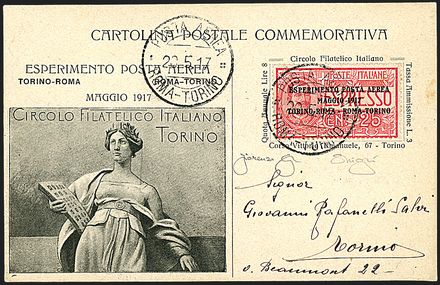 CARTOLINA POSTALE COMMEMORATIVA
ESPERIMENTO POSTA AEREA
TORINO-ROMA ROMA-TORINO
MAGGIO 1917
POSTA AEREA
22.5.17
ROMA-TORINO
Circolo Filatelico Italiano
Quota Annuale Lire 8
Tassa Ammissione L. 3
POSTE ITALIANE
ESPRESSO
ESPERIMENTO POSTA AEREA
MAGGIO 1917
TORINO-ROMA · ROMA-TORINO
CENT 25
Corso Vitt. Emanuele, 67 - Torino
CIRCOLO FILATELICO ITALIANO
TORINO
Signor
Giovanni Rafanelli
Torino
v. Beaumont 22